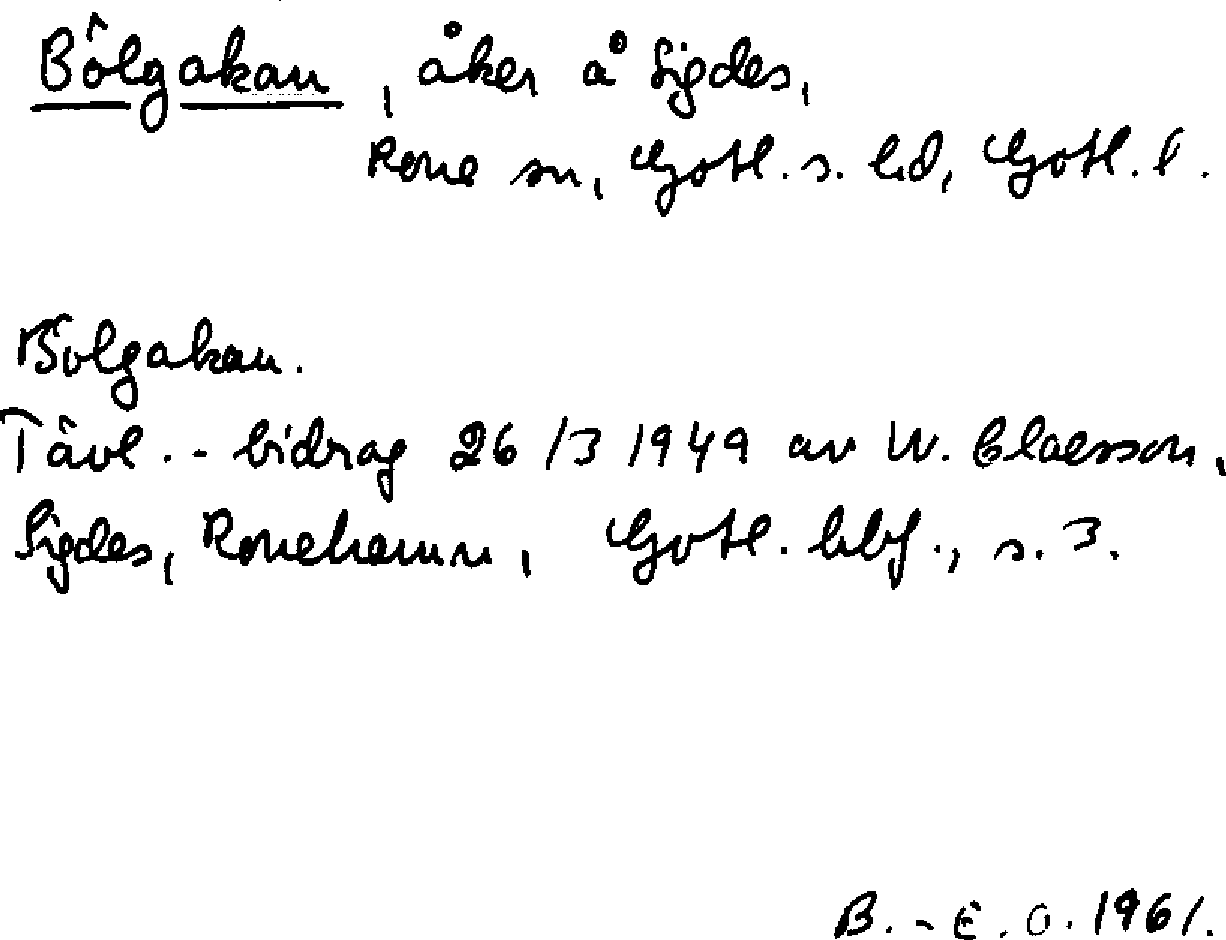 Bôlgakau, åker å Sigdes,
Rone sn, Gotl. s. hd, Gotl. l.
Bôlgakau.
Tävl.-bidrag 26/3 1949 av W. Claesson,
Sigdes, Ronehamn, Gotl. hbf., s. 3.
B.-E. O. 1961.